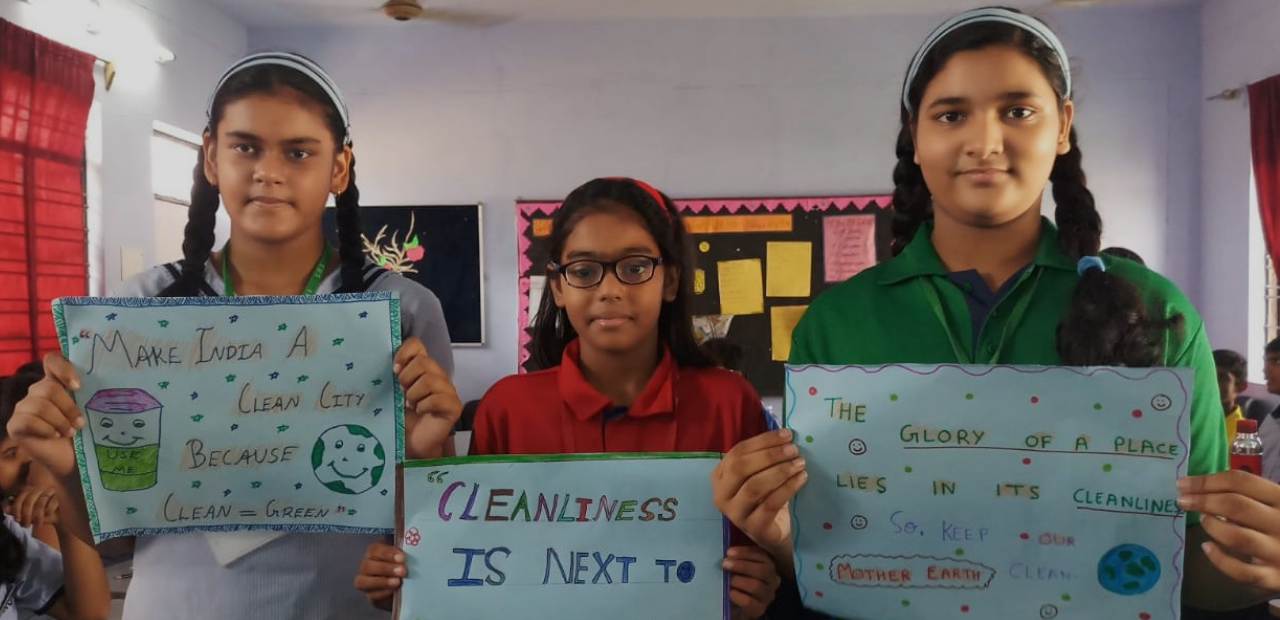 "MAKE INDIA A
CLEAN CITY
BECAUSE
CLEAN = GREEN"
USE
ME
"CLEANLINESS
IS NEXT TO
THE
GLORY OF A PLACE
LIES IN ITS CLEANLINES
So, KEEP OUR
MOTHER EARTH CLEAN